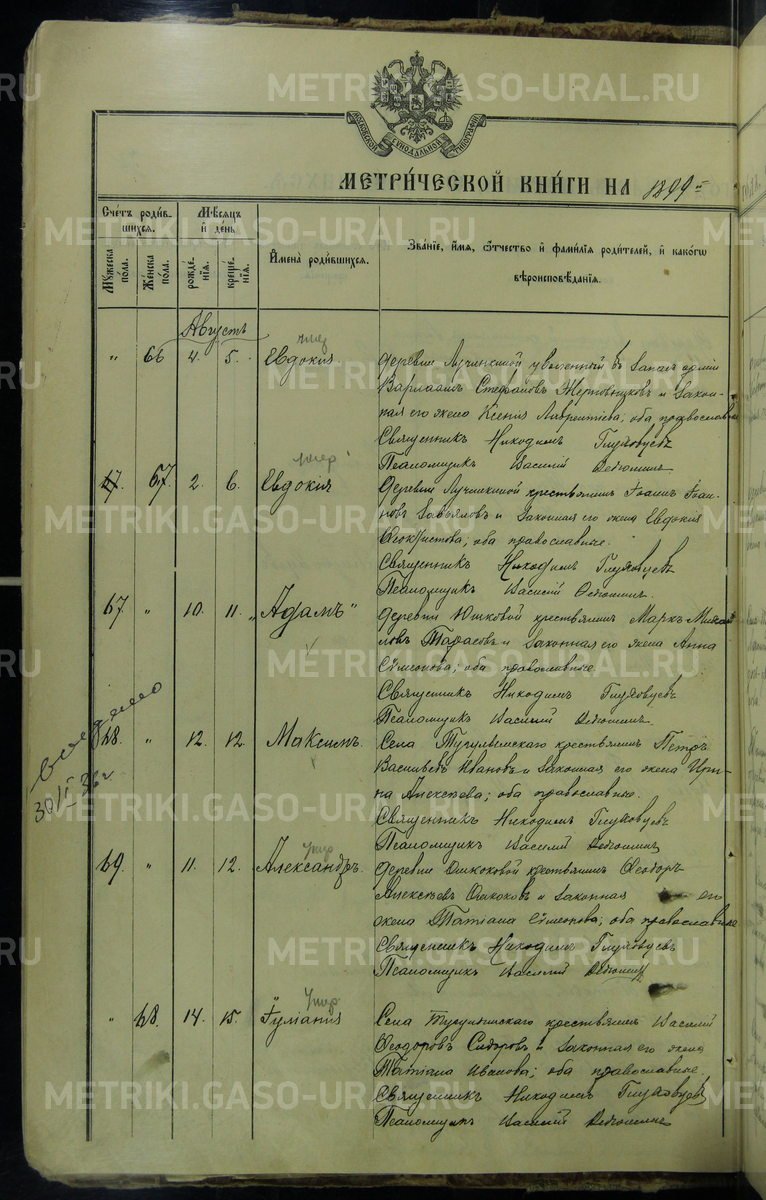 METRIKI.GASO-URAL.RU
МОСКОВСКОЙ СѴНОДАЛЬНОЙ ТИПОГРАФІИ
МЕТРИ́ЧЕСКОЙ КНИ́ГИ НА 1899 г.
Сче́тъ роди́вшихся.
Мѣ́сяцъ и де́нь
Му́жеска по́ла.
Же́нска по́ла.
рожде́нїѧ.
креще́нїѧ.
Имена̀ роди́вшихсѧ.
Зва́нїе, и́мѧ, ѻ́тчество и фами́лїѧ роди́телей, и како́гѡ
вѣроисповѣ́данїѧ.
Августъ
умер
" 66 4. 5. Евдокія. деревни уволенный въ запасъ арміи
Варлаамъ Стефановъ и закон-
ная его жена Ксенія Лаврентіева; оба православные
Священникъ Никодимъ Глуховцевъ
Псаломщикъ Василій
умер
67. 2. 6. Евдокія деревни крестьянинъ Іоаннъ Іоан-
новъ Завьяловъ и законная его жена Евдокія
Ѳеоктистова; оба православные.
Священникъ Никодимъ Глуховцевъ
Псаломщикъ Василій
67 " 10. 11. "Адамъ" деревни Юшковой крестьянинъ Маркъ Михаи
ловъ Тарасовъ и законная его жена Анна
Сѵмеонова; оба православные.
Священникъ Никодимъ Глуховцевъ
Псаломщикъ Василій
выдано
30/II 36 г
68. " 12. 12. Максимъ. Села Тугулымскаго крестьянинъ Петръ
Васильевъ Ивановъ и законная его жена Ири-
на Алексѣева; оба православные.
Священникъ Никодимъ Глуховцевъ
Псаломщикъ Василій
умер
69. " 11. 12. Александръ. деревни крестьянинъ Ѳеодоръ
Алексѣевъ и законная его
жена Татіана Сѵмеонова; оба православные
Священникъ Никодимъ Глуховцевъ
Псаломщикъ Василій
умер
" 68. 14. 15. Іуліанія Села Тугулымскаго крестьянинъ Василій
Ѳеодоровъ Сидоровъ и законная его жена
Татіана Иванова; оба православные.
Священникъ Никодимъ Глуховцевъ
Псаломщикъ Василій